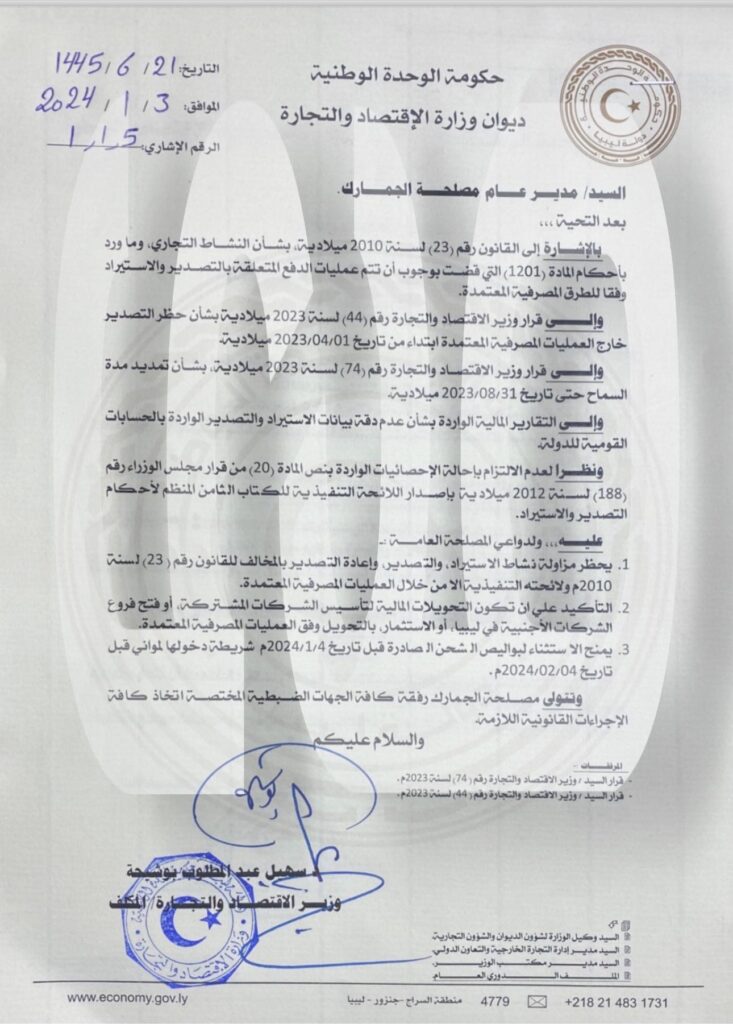 حكومة الوحدة الوطنية
ديوان وزارة الإقتصاد والتجارة
التاريخ: 21 / 6 / 1445
الموافق: 3 / 1 / 2024
الرقم الإشاري: 1.1.5
السيد/ مدير عام مصلحة الجمارك.
بعد التحية ،،،
بالإشارة إلى القانون رقم (23) لسنة 2010 ميلادية، بشأن النشاط التجاري، وما ورد
بأحكام المادة (1201) التي قضت بوجوب أن تتم عمليات الدفع المتعلقة بالتصدير والاستيراد
وفقا للطرق المصرفية المعتمدة.
وإلى قرار وزير الاقتصاد والتجارة رقم (44) لسنة 2023 ميلادية بشأن حظر التصدير
خارج العمليات المصرفية المعتمدة ابتداء من تاريخ 2023/04/01 ميلادية.
وإلى قرار وزير الاقتصاد والتجارة رقم (74) لسنة 2023 ميلادية، بشأن تمديد مدة
السماح حتى تاريخ 2023/08/31 ميلادية.
وإلى التقارير المالية الواردة بشأن عدم دقة بيانات الاستيراد والتصدير الواردة بالحسابات
القومية للدولة.
ونظرا لعدم الالتزام بإحالة الإحصائيات الواردة بنص المادة (20) من قرار مجلس الوزراء رقم
(188) لسنة 2012 ميلادية بإصدار اللائحة التنفيذية للكتاب الثامن المنظم لأحكام
التصدير والاستيراد.
عليه،،، ولدواعي المصلحة العامة :-
1. يحظر مزاولة نشاط الاستيراد، والتصدير، وإعادة التصدير بالمخالف للقانون رقم (23) لسنة
2010م ولائحته التنفيذية الا من خلال العمليات المصرفية المعتمدة.
2. التأكيد علي ان تكون التحويلات المالية لتأسيس الشركات المشتركة، أو فتح فروع
الشركات الأجنبية في ليبيا، أو الاستثمار، بالتحويل وفق العمليات المصرفية المعتمدة.
3. يمنح الاستثناء لبواليص الشحن الصادرة قبل تاريخ 2024/1/4م شريطة دخولها لمواني قبل
تاريخ 2024/02/04م.
وتتولى مصلحة الجمارك رفقة كافة الجهات الضبطية المختصة اتخاذ كافة
الإجراءات القانونية اللازمة.
والسلام عليكم
المرفقات :-
- قرار السيد / وزير الاقتصاد والتجارة رقم (74) لسنة 2023م.
- قرار السيد / وزير الاقتصاد والتجارة رقم (44) لسنة 2023م.
د. سهيل عبد المطلوب بوشيحة
وزير الاقتصاد والتجارة المكلف
السيد وكيل الوزارة لشؤون الديوان والشؤون التجارية.
السيد مدير إدارة التجارة الخارجية والتعاون الدولي.
السيد مدير مكتب الوزير.
الملف الدوري العام.
www.economy.gov.ly منطقة السراج -جنزور - ليبيا 4779 +218 21 483 1731